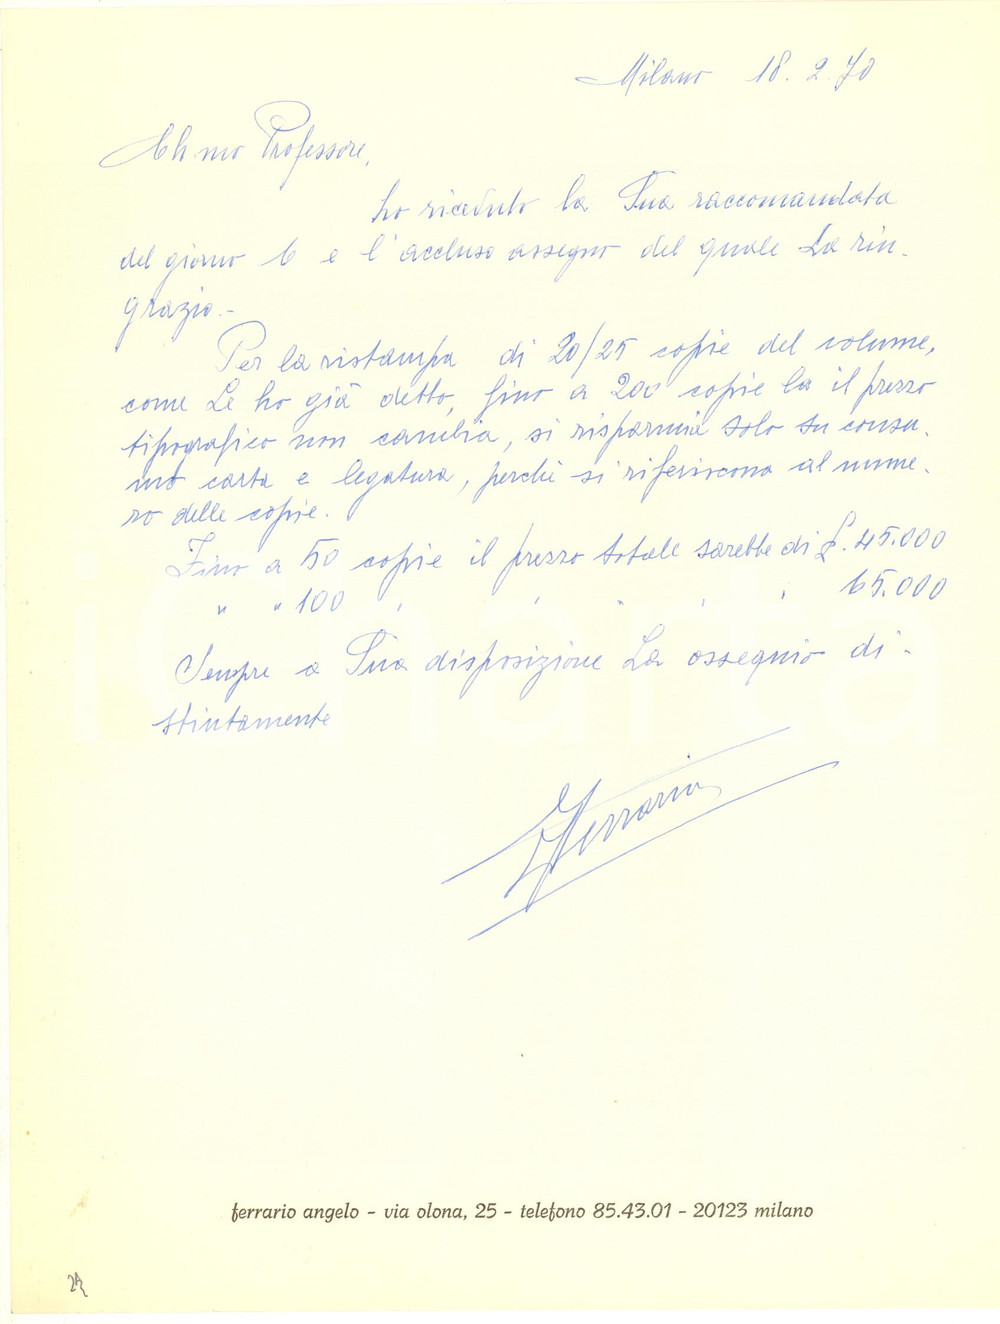 Milano 18.2.70
Ch.mo Professore,
ho ricevuto la Sua raccomandata
del giorno 6 e l'accluso assegno del quale La rin-
grazio.-
Per la ristampa di 20/25 copie del volume,
come Le ho già detto, fino a 200 copie la il prezzo
tipografico non cambia, si risparmia solo su consu-
mo carta e legatura, perché si riferiscono al nume-
ro delle copie.
Fino a 50 copie il prezzo totale sarebbe di £. 45.000
" " 100 " " " " " 65.000
Sempre a Sua disposizione La ossequio di-
stintamente
Ferrario
ferrario angelo - via olona, 25 - telefono 85.43.01 - 20123 milano
iCharta